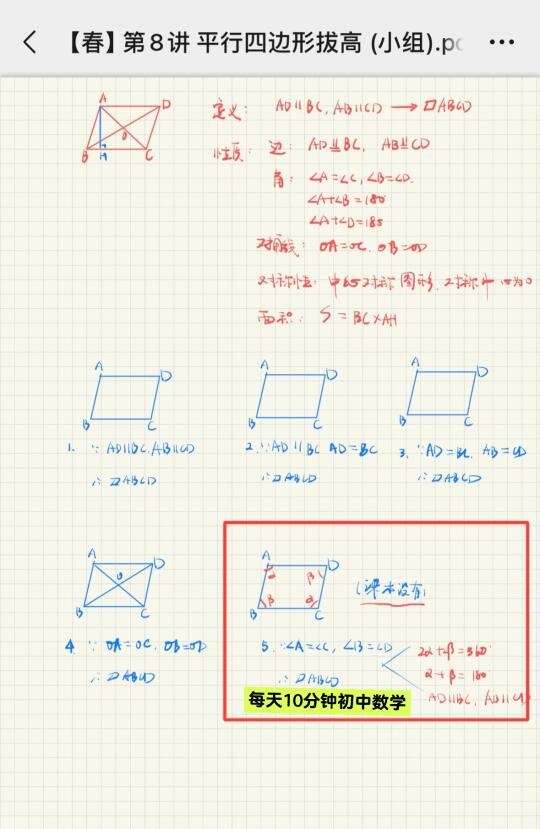 【春】第8讲 平行四边形拔高 (小组).pd
A D
O
B H C
定义: AD∥BC, AB∥CD → ▱ABCD
性质: 边: AD∥=BC, AB∥=CD
角: ∠A=∠C, ∠B=∠D.
∠A+∠B=180°
∠A+∠D=185
对角线: OA=OC, OB=OD
对称性: 中心对称图形, 对称中心为O
面积: S=BC×AH
A D
B C
A D
B C
A D
B C
1. ∵ AD∥BC, AB∥CD
∴ ▱ABCD
2. ∵AD∥BC AD=BC
∴ ▱ABCD
3. ∵AD=BC, AB=CD
∴ ▱ABCD
A D
O
B C
4. ∵ OA=OC, OB=OD
∴ ▱ABCD
A D
α β
β α
B C
(课本没有)
5. ∵∠A=∠C, ∠B=∠D
∴ ▱ABCD
2α+2β=360°
α+β=180°
AD∥BC, AB∥CD
每天10分钟初中数学